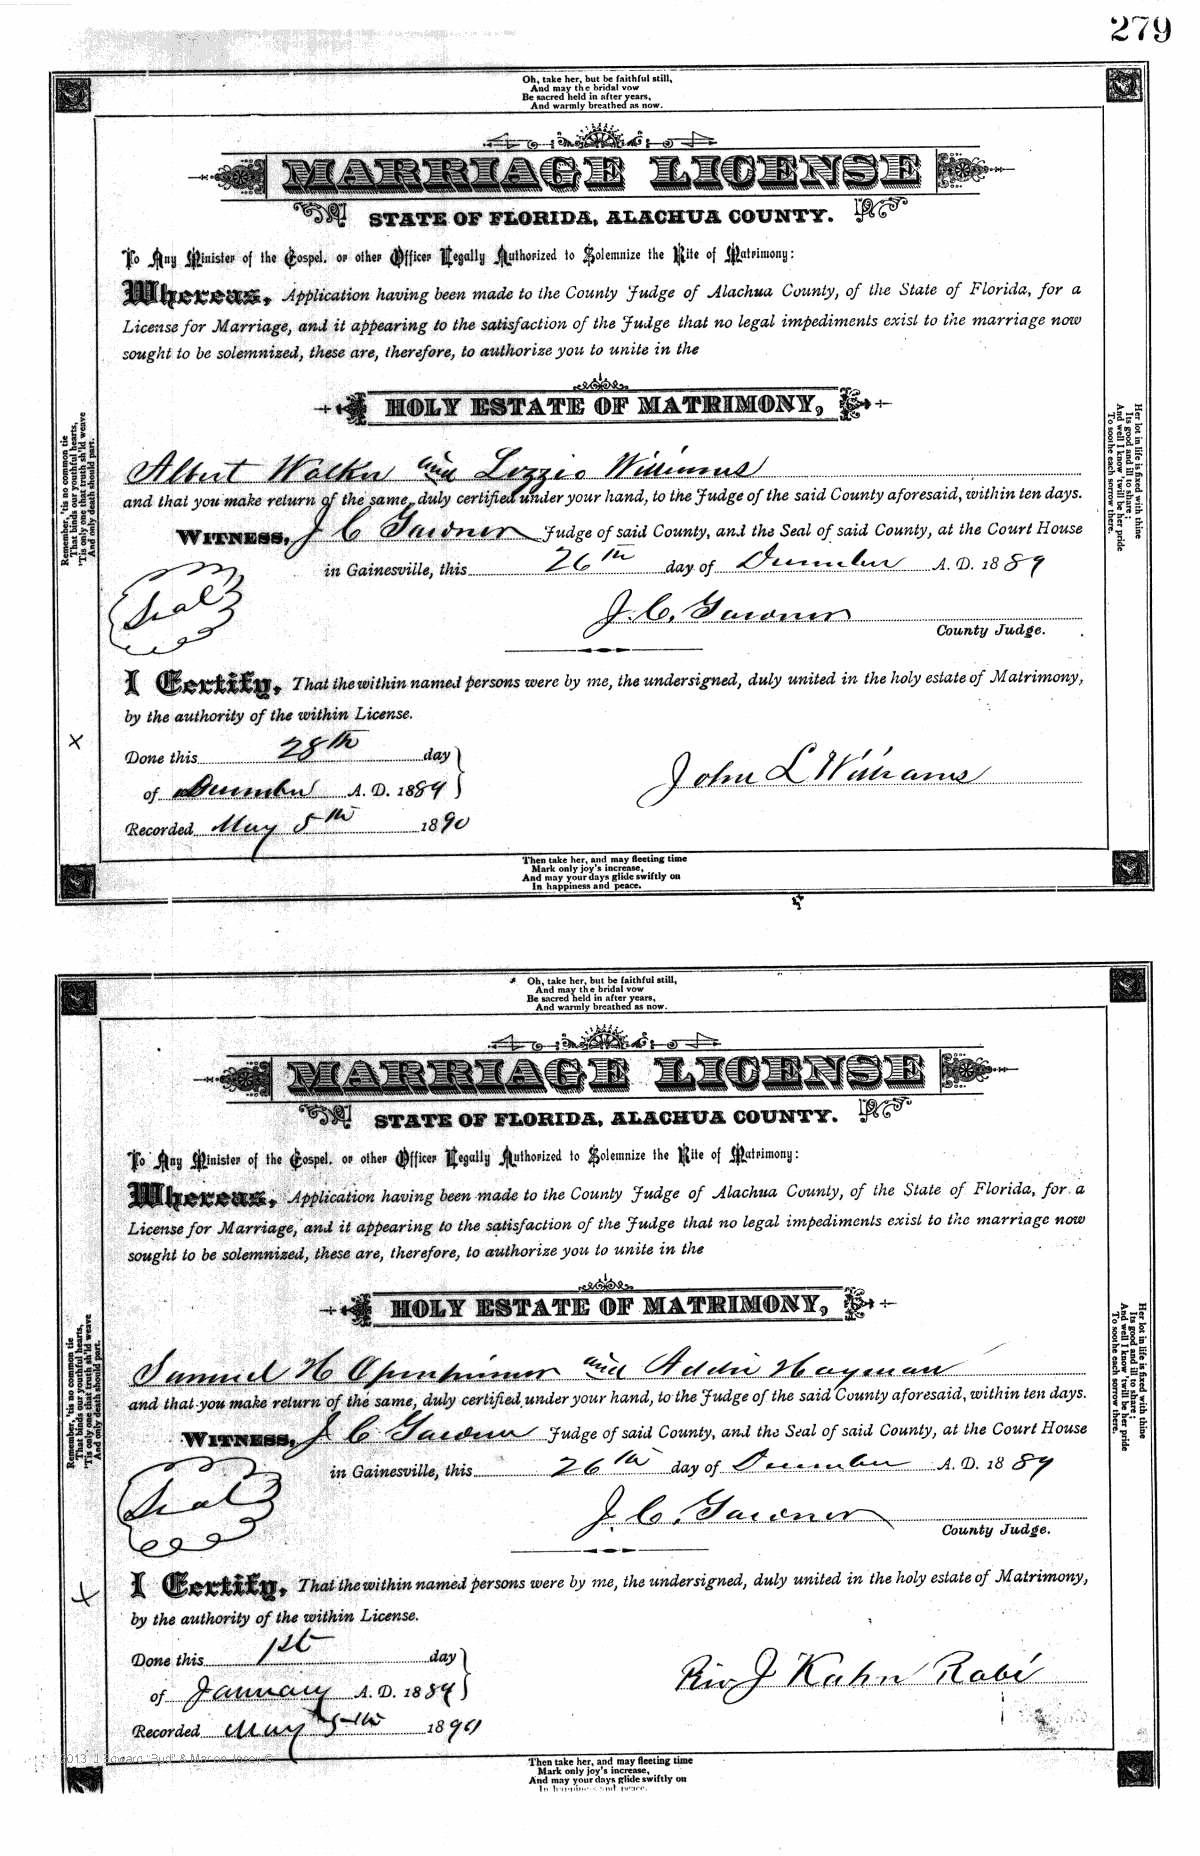 279
Oh, take her, but be faithful still,
And may the bridal vow
Be sacred held in after years,
And warmly breathed as now.
MARRIAGE LICENSE
STATE OF FLORIDA, ALACHUA COUNTY.
To Any Minister of the Gospel, or other Officer Legally Authorized to Solemnize the Rite of Matrimony:
Whereas, Application having been made to the County Judge of Alachua County, of the State of Florida, for a
License for Marriage, and it appearing to the satisfaction of the Judge that no legal impediments exist to the marriage now
sought to be solemnized, these are, therefore, to authorize you to unite in the
HOLY ESTATE OF MATRIMONY,
Albert Walker and Lizzie Williams
and that you make return of the same, duly certified under your hand, to the Judge of the said County aforesaid, within ten days.
WITNESS, J C Gardner Judge of said County, and the Seal of said County, at the Court House
in Gainesville, this 26th day of December A. D. 1889
Seal
J. C. Gardner
County Judge.
I Certify, That the within named persons were by me, the undersigned, duly united in the holy estate of Matrimony,
by the authority of the within License.
Done this 28th day
of December A. D. 1889
John L Williams
Recorded May 5th 1890
Remember, 'tis no common tie
That binds our youthful hearts,
'Tis only one that truth sh'ld weave
And only death should part.
Her lot in life is fixed with thine
Its good and ill to share;
And well I know 'twill be her pride
To soothe each sorrow there.
Then take her, and may fleeting time
Mark only joy's increase,
And may your days glide swiftly on
In happiness and peace.
Oh, take her, but be faithful still,
And may the bridal vow
Be sacred held in after years,
And warmly breathed as now.
MARRIAGE LICENSE
STATE OF FLORIDA, ALACHUA COUNTY.
To Any Minister of the Gospel, or other Officer Legally Authorized to Solemnize the Rite of Matrimony:
Whereas, Application having been made to the County Judge of Alachua County, of the State of Florida, for a
License for Marriage, and it appearing to the satisfaction of the Judge that no legal impediments exist to the marriage now
sought to be solemnized, these are, therefore, to authorize you to unite in the
HOLY ESTATE OF MATRIMONY,
Samuel H and Addie Hayman
and that you make return of the same, duly certified under your hand, to the Judge of the said County aforesaid, within ten days.
WITNESS, J C Gardner Judge of said County, and the Seal of said County, at the Court House
in Gainesville, this 26th day of December A. D. 1889
Seal
J. C. Gardner
County Judge.
I Certify, That the within named persons were by me, the undersigned, duly united in the holy estate of Matrimony,
by the authority of the within License.
Done this 1st day
of January A. D. 1889
Rev J Kahn Rabi
Recorded May 5th 1890
Remember, 'tis no common tie
That binds our youthful hearts,
'Tis only one that truth sh'ld weave
And only death should part.
Her lot in life is fixed with thine
Its good and ill to share;
And well I know 'twill be her pride
To soothe each sorrow there.
Then take her, and may fleeting time
Mark only joy's increase,
And may your days glide swiftly on
In happiness and peace.